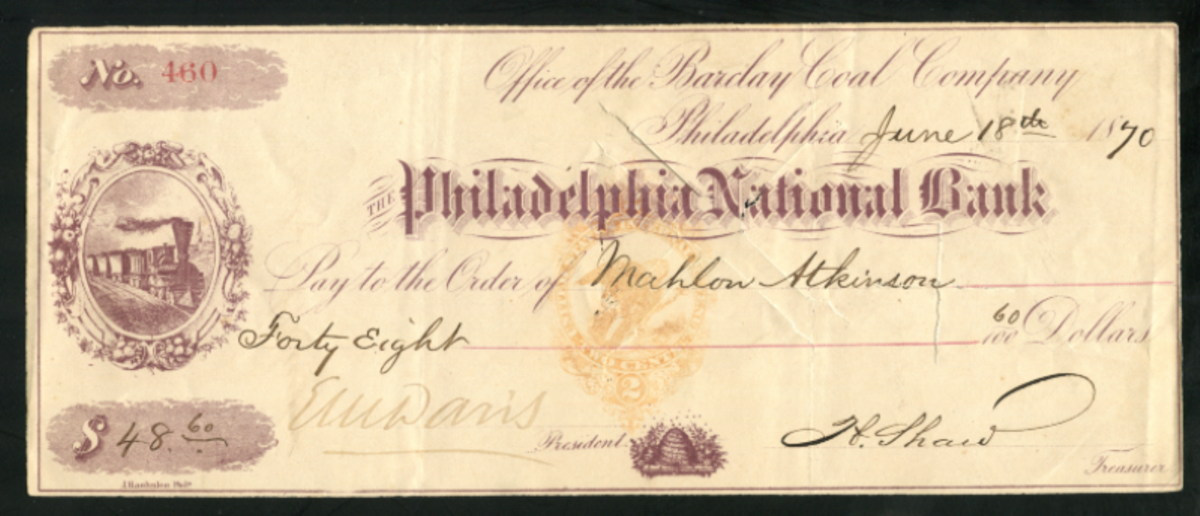 No. 460
Office of the Barclay Coal Company
Philadelphia June 18th 1870
THE Philadelphia National Bank
Pay to the Order of Mahlon Atkinson
Forty Eight 60/100 Dollars
$ 48.60
Davis
President.
H. Shaw
Treasurer
2